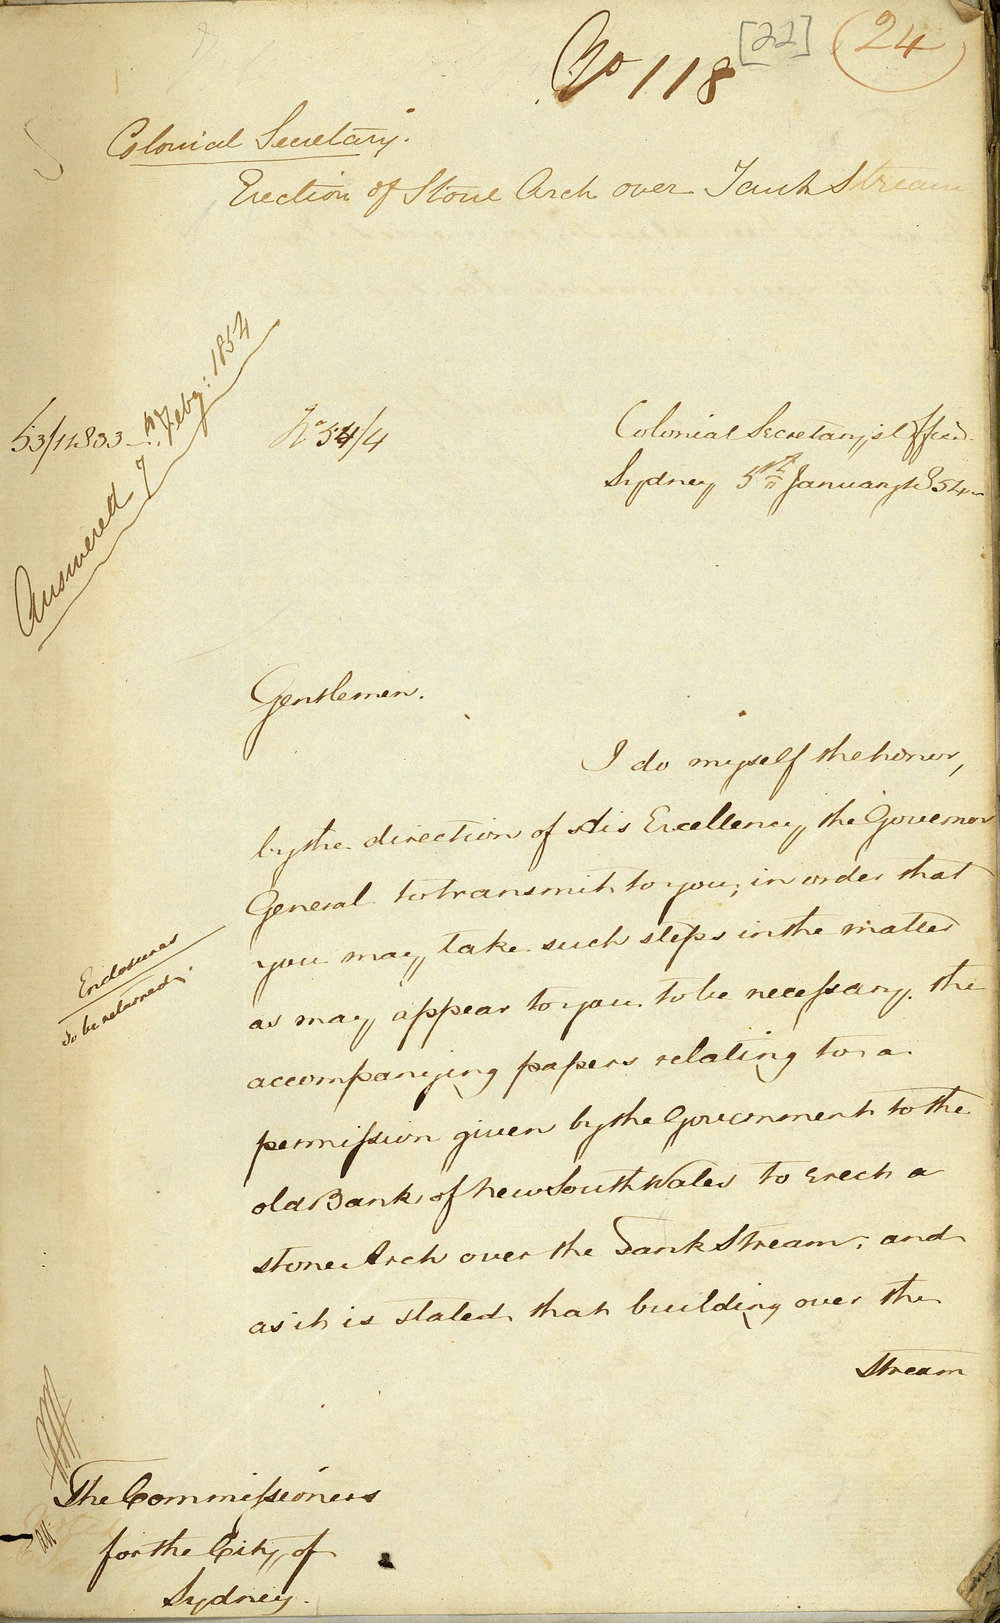 No 118
[22]
24
Colonial Secretary.
Erection of Stone Arch over Tank Stream
53/11833
Answered 7th Feby: 1854
No 54/4
Colonial Secretary's Office
Sydney 5th January 1854
Gentlemen.
I do myself the honor,
by the direction of His Excellency the Governor
General to transmit to you, in order that
you may take such steps in the matter
as may appear to you to be necessary, the
accompanying papers relating to a
permission given by the Government to the
old Bank of New South Wales to erect a
stone Arch over the Tank Stream, and
as it is stated that building over the
Stream
Enclosures
to be returned.
The Commissioners
for the City of
Sydney.